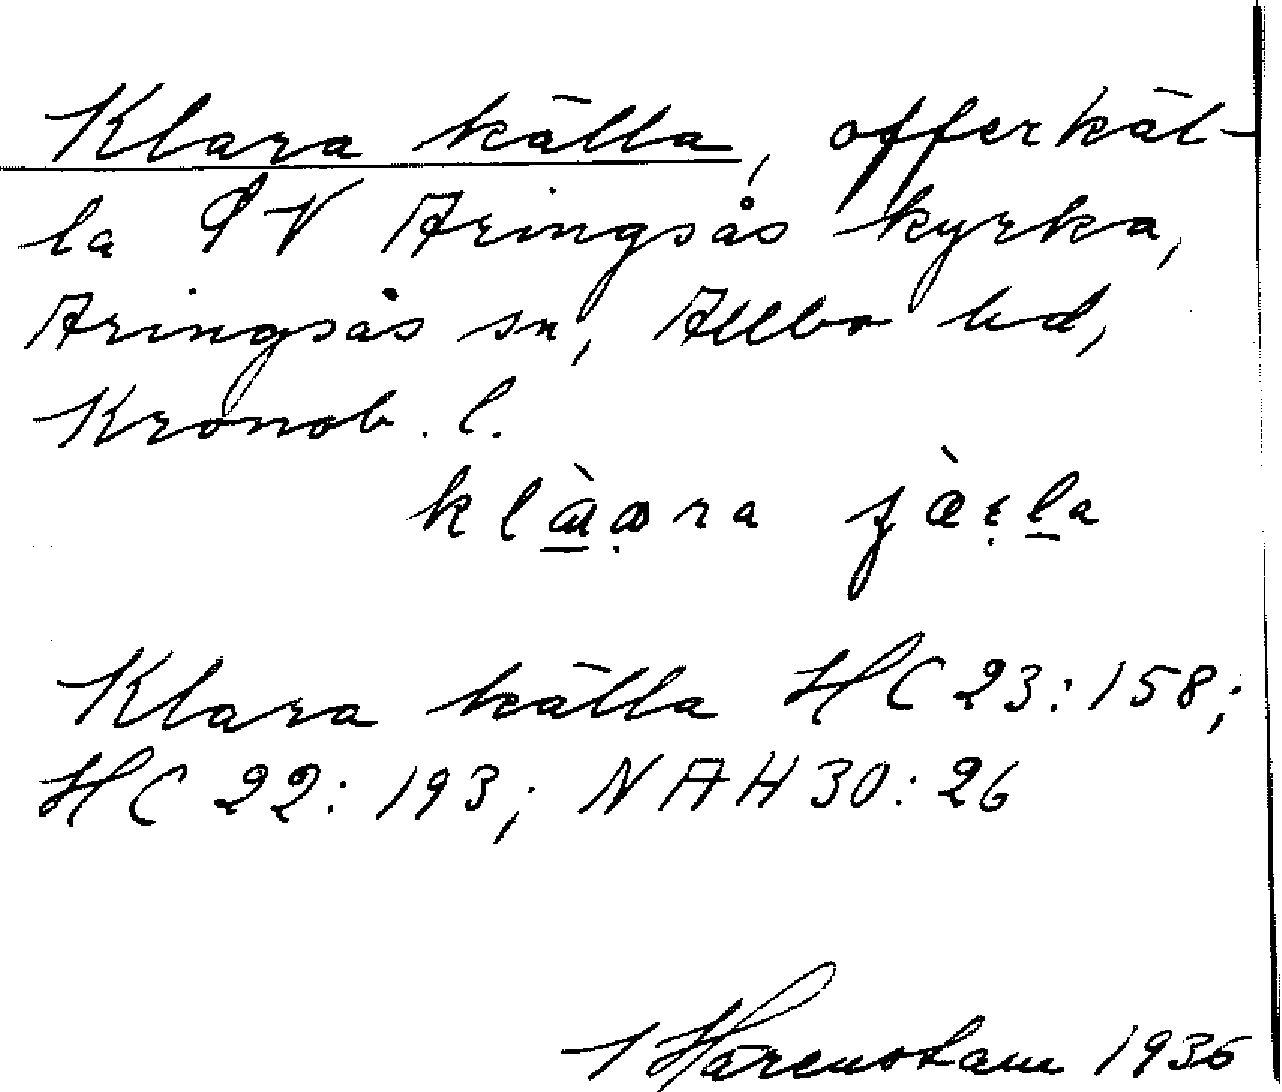 Klara källa, offerkäl-
la SV Aringsås kyrka,
Aringsås sn, Allbo hd,
Kronob. l.
Klara källa HC 23:158;
HC 22:193; NAH 30:26
Härenstam 1935